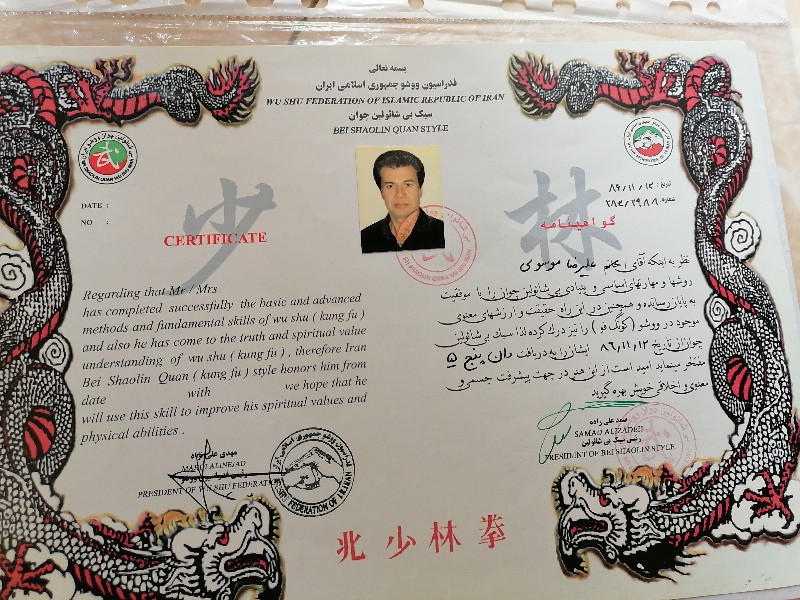 بسمه تعالی
فدراسیون ووشو جمهوری اسلامی ایران
WU SHU FEDERATION OF ISLAMIC REPUBLIC OF IRAN
سبک بی شائولین جوان
BEI SHAOLIN QUAN STYLE
DATE :
NO :
少
林
CERTIFICATE
Regarding that Mr / Mrs
has completed successfully the basic and advanced
methods and fundamental skills of wu shu ( kung fu )
and also he has come to the truth and spiritual value
understanding of wu shu ( kung fu ) , therefore Iran
Bei Shaolin Quan ( kung fu ) style honors him from
date with we hope that he
will use this skill to improve his spiritual values and
physical abilities .
تاریخ:
شماره:
گواهینامه
نظر به اینکه آقای / خانم علیرضا موسوی
روشها و مهارتهای اساسی و بنیادی بی شائولین جوان را با موفقیت
به پایان رسانده و همچنین در این راه حقیقت و ارزشهای معنوی
موجود در ووشو ( کونگ فو ) را نیز درک کرده لذا سبک بی شائولین
جوان از تاریخ ۸۶/۱۱/۱۲ ایشان را به دریافت دان پنج ۵
مفتخر مینماید امید است از این هنر در جهت پیشرفت جسمی و
معنوی و اخلاقی خویش بهره گیرید
مهدی علی نژاد
MAHDI ALINEJAD
PRESIDENT OF WU SHU FEDERATION
صمد علی زاده
SAMAD ALIZADEH
رئیس سبک بی شائولین
PRESIDENT OF BEI SHAOLIN STYLE
北少林拳